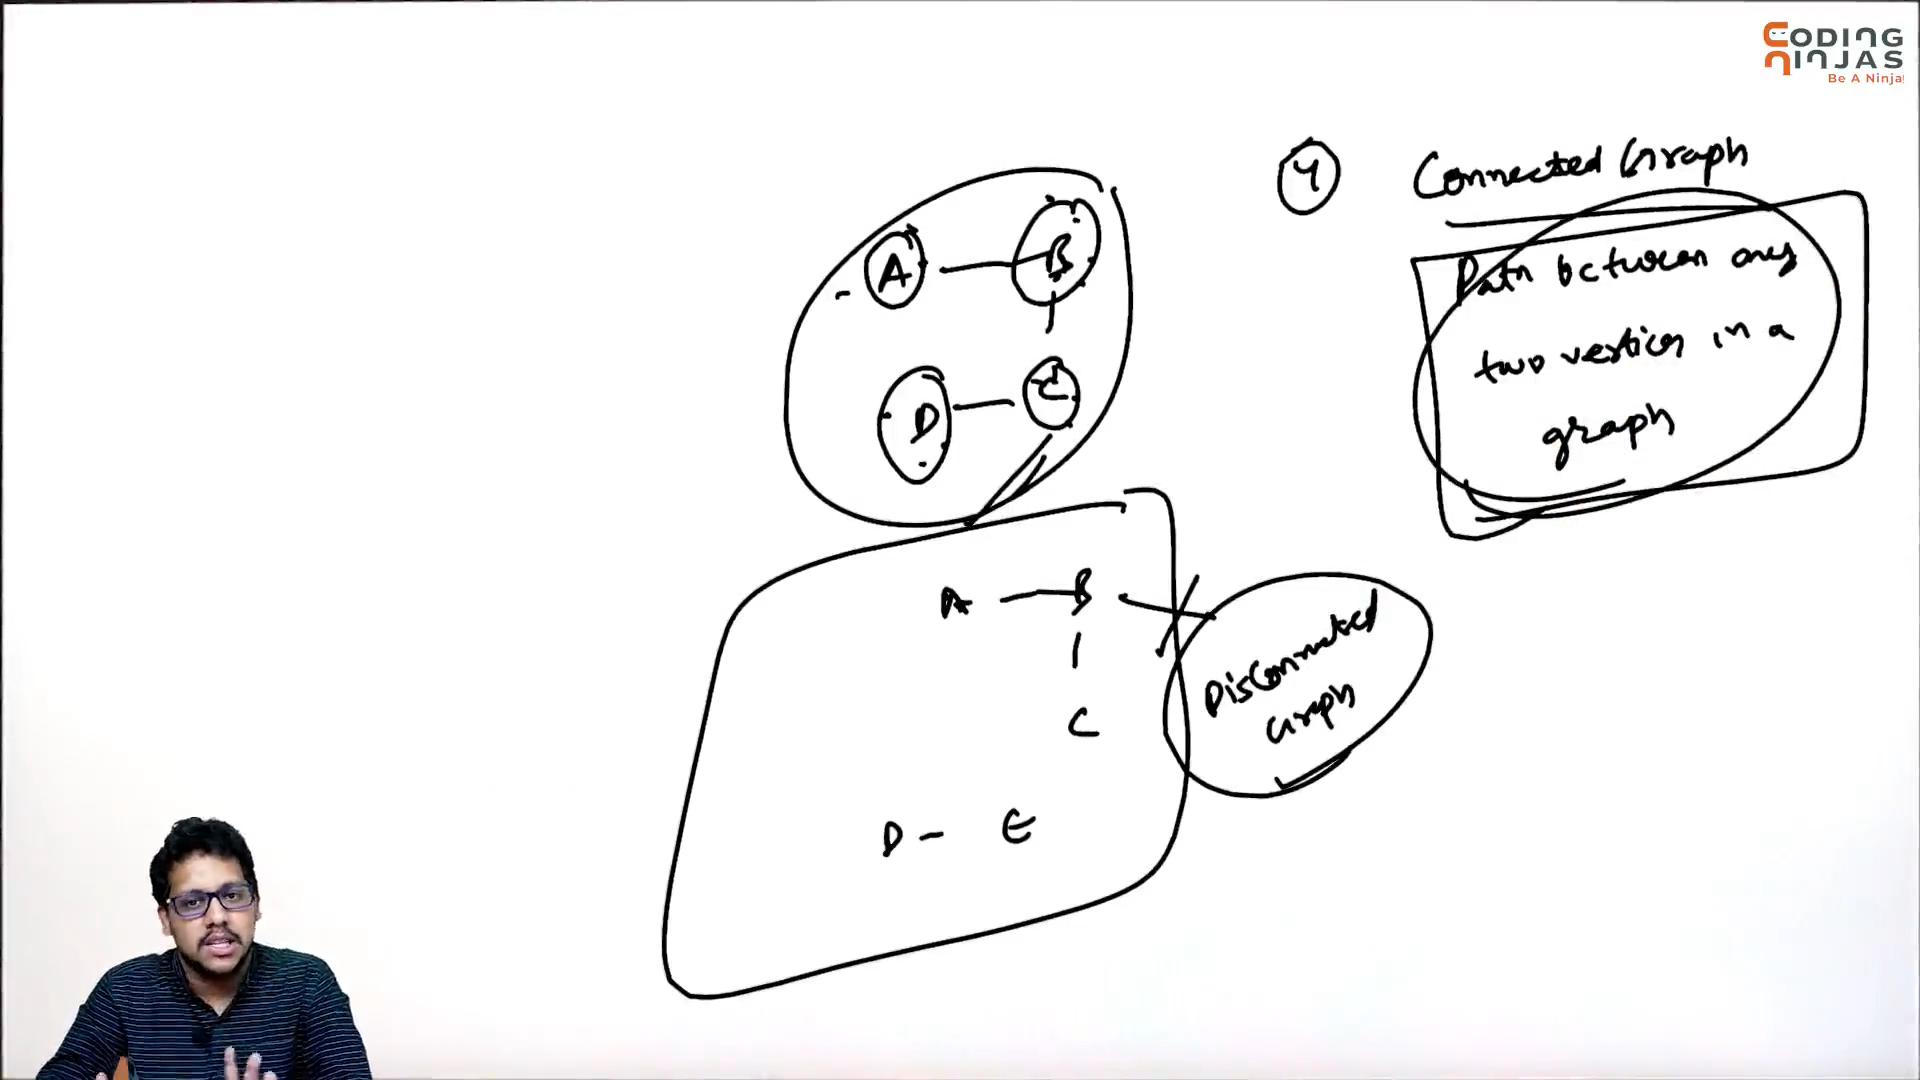 CODING
NINJAS
Be A Ninja!
4 Connected Graph
Path between any
two vertices in a
graph
A B
D C
A B
C
D E
Disconnected
Graph